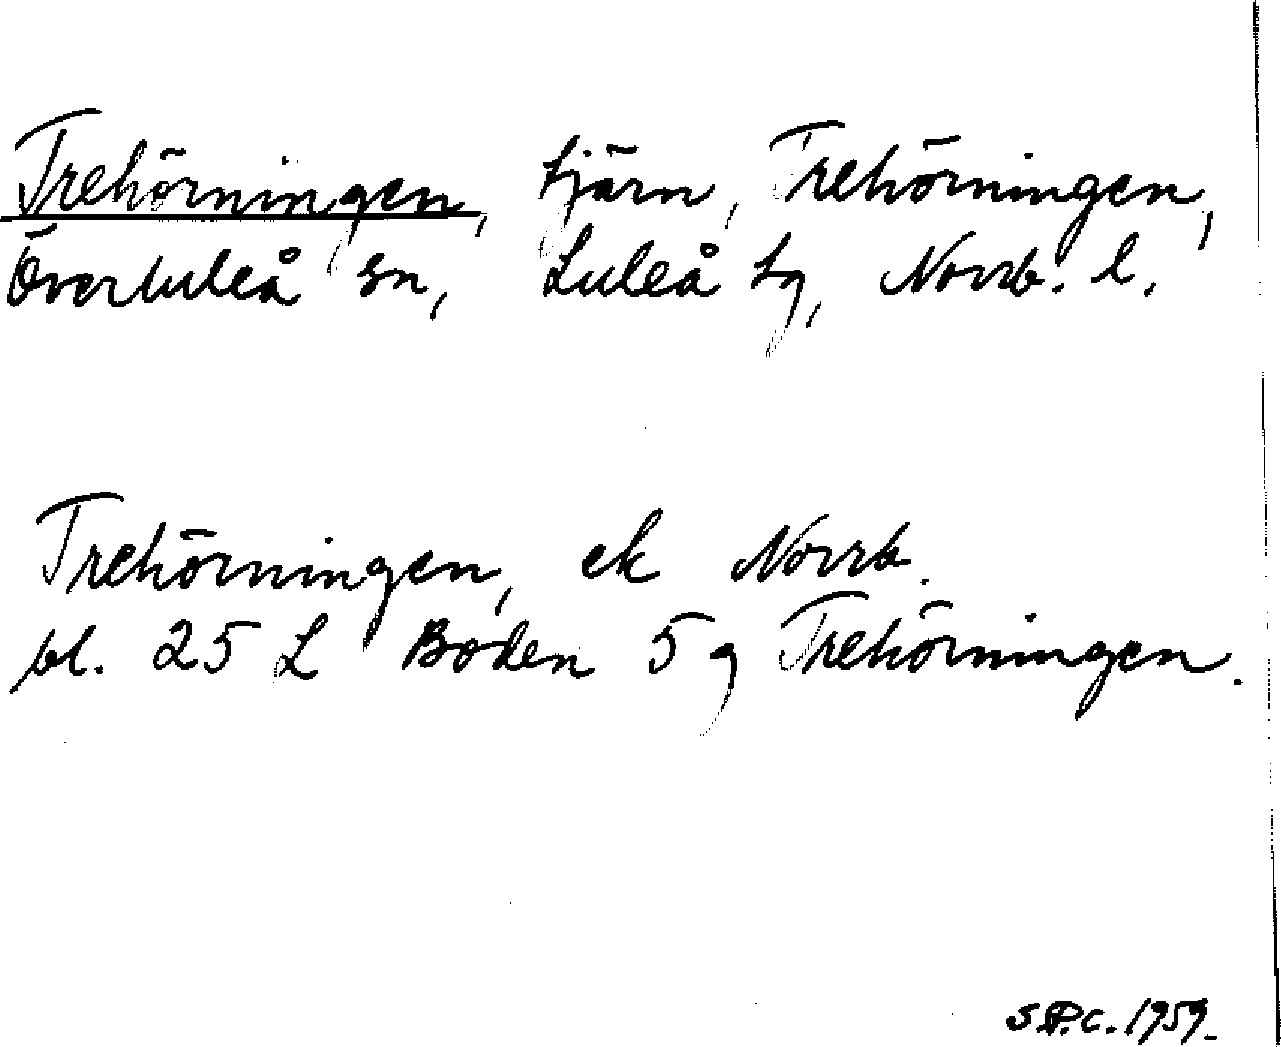 Trehörningen, tjärn, Trehörningen,
Överluleå sn, Luleå tg, Norrb. l.
Trehörningen, ek Norrb.
bl. 25 L Boden 5 g Trehörningen.
S.P.C. 1959.